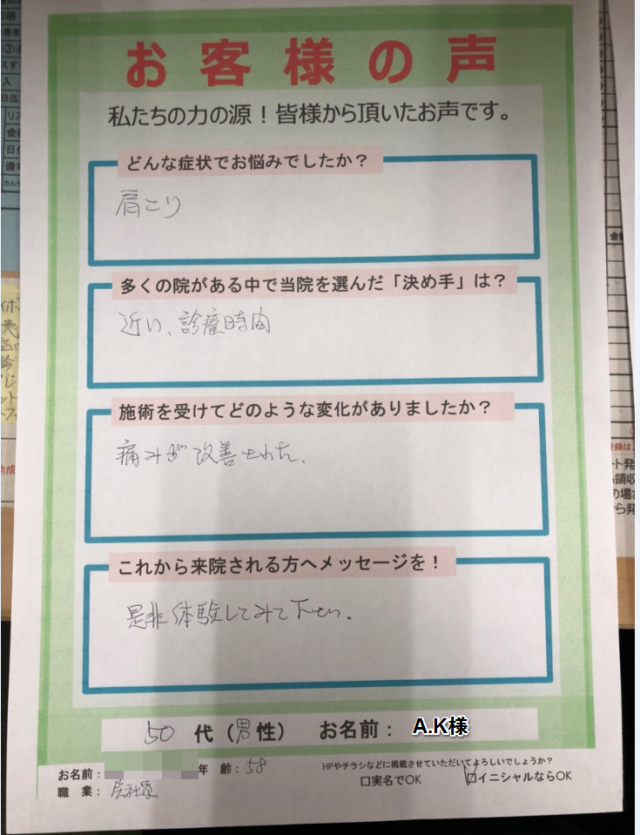 お客様の声
私たちの力の源！皆様から頂いたお声です。
どんな症状でお悩みでしたか？
肩こり
多くの院がある中で当院を選んだ「決め手」は？
近い、診療時間
施術を受けてどのような変化がありましたか？
痛みが改善された、
これから来院される方へメッセージを！
是非体験してみて下さい。
50 代（男性） お名前： A.K様
お名前： 年 齢：58
職 業：会社員
HPやチラシなどに掲載させていただいてよろしいでしょうか？
□実名でOK ☑イニシャルならOK